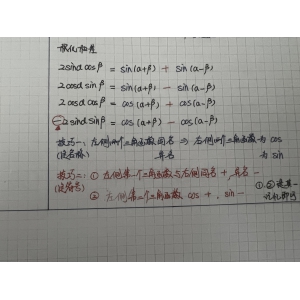 积化和差
2sinα cosβ = sin(α+β) + sin(α-β)
2cosα sinβ = sin(α+β) - sin(α-β)
2cosα cosβ = cos(α+β) + cos(α-β)
-2sinα sinβ = cos(α+β) - cos(α-β)
技巧一:左侧两个三角函数同名 → 右侧三角函数为 cos
(定名称) 异名 为 sin
技巧二:① 左侧三角函数与右侧同名 +,异名 -
(定符号)
② 左侧第二个三角函数 cos +,sin -
①②选其一
记忆即可